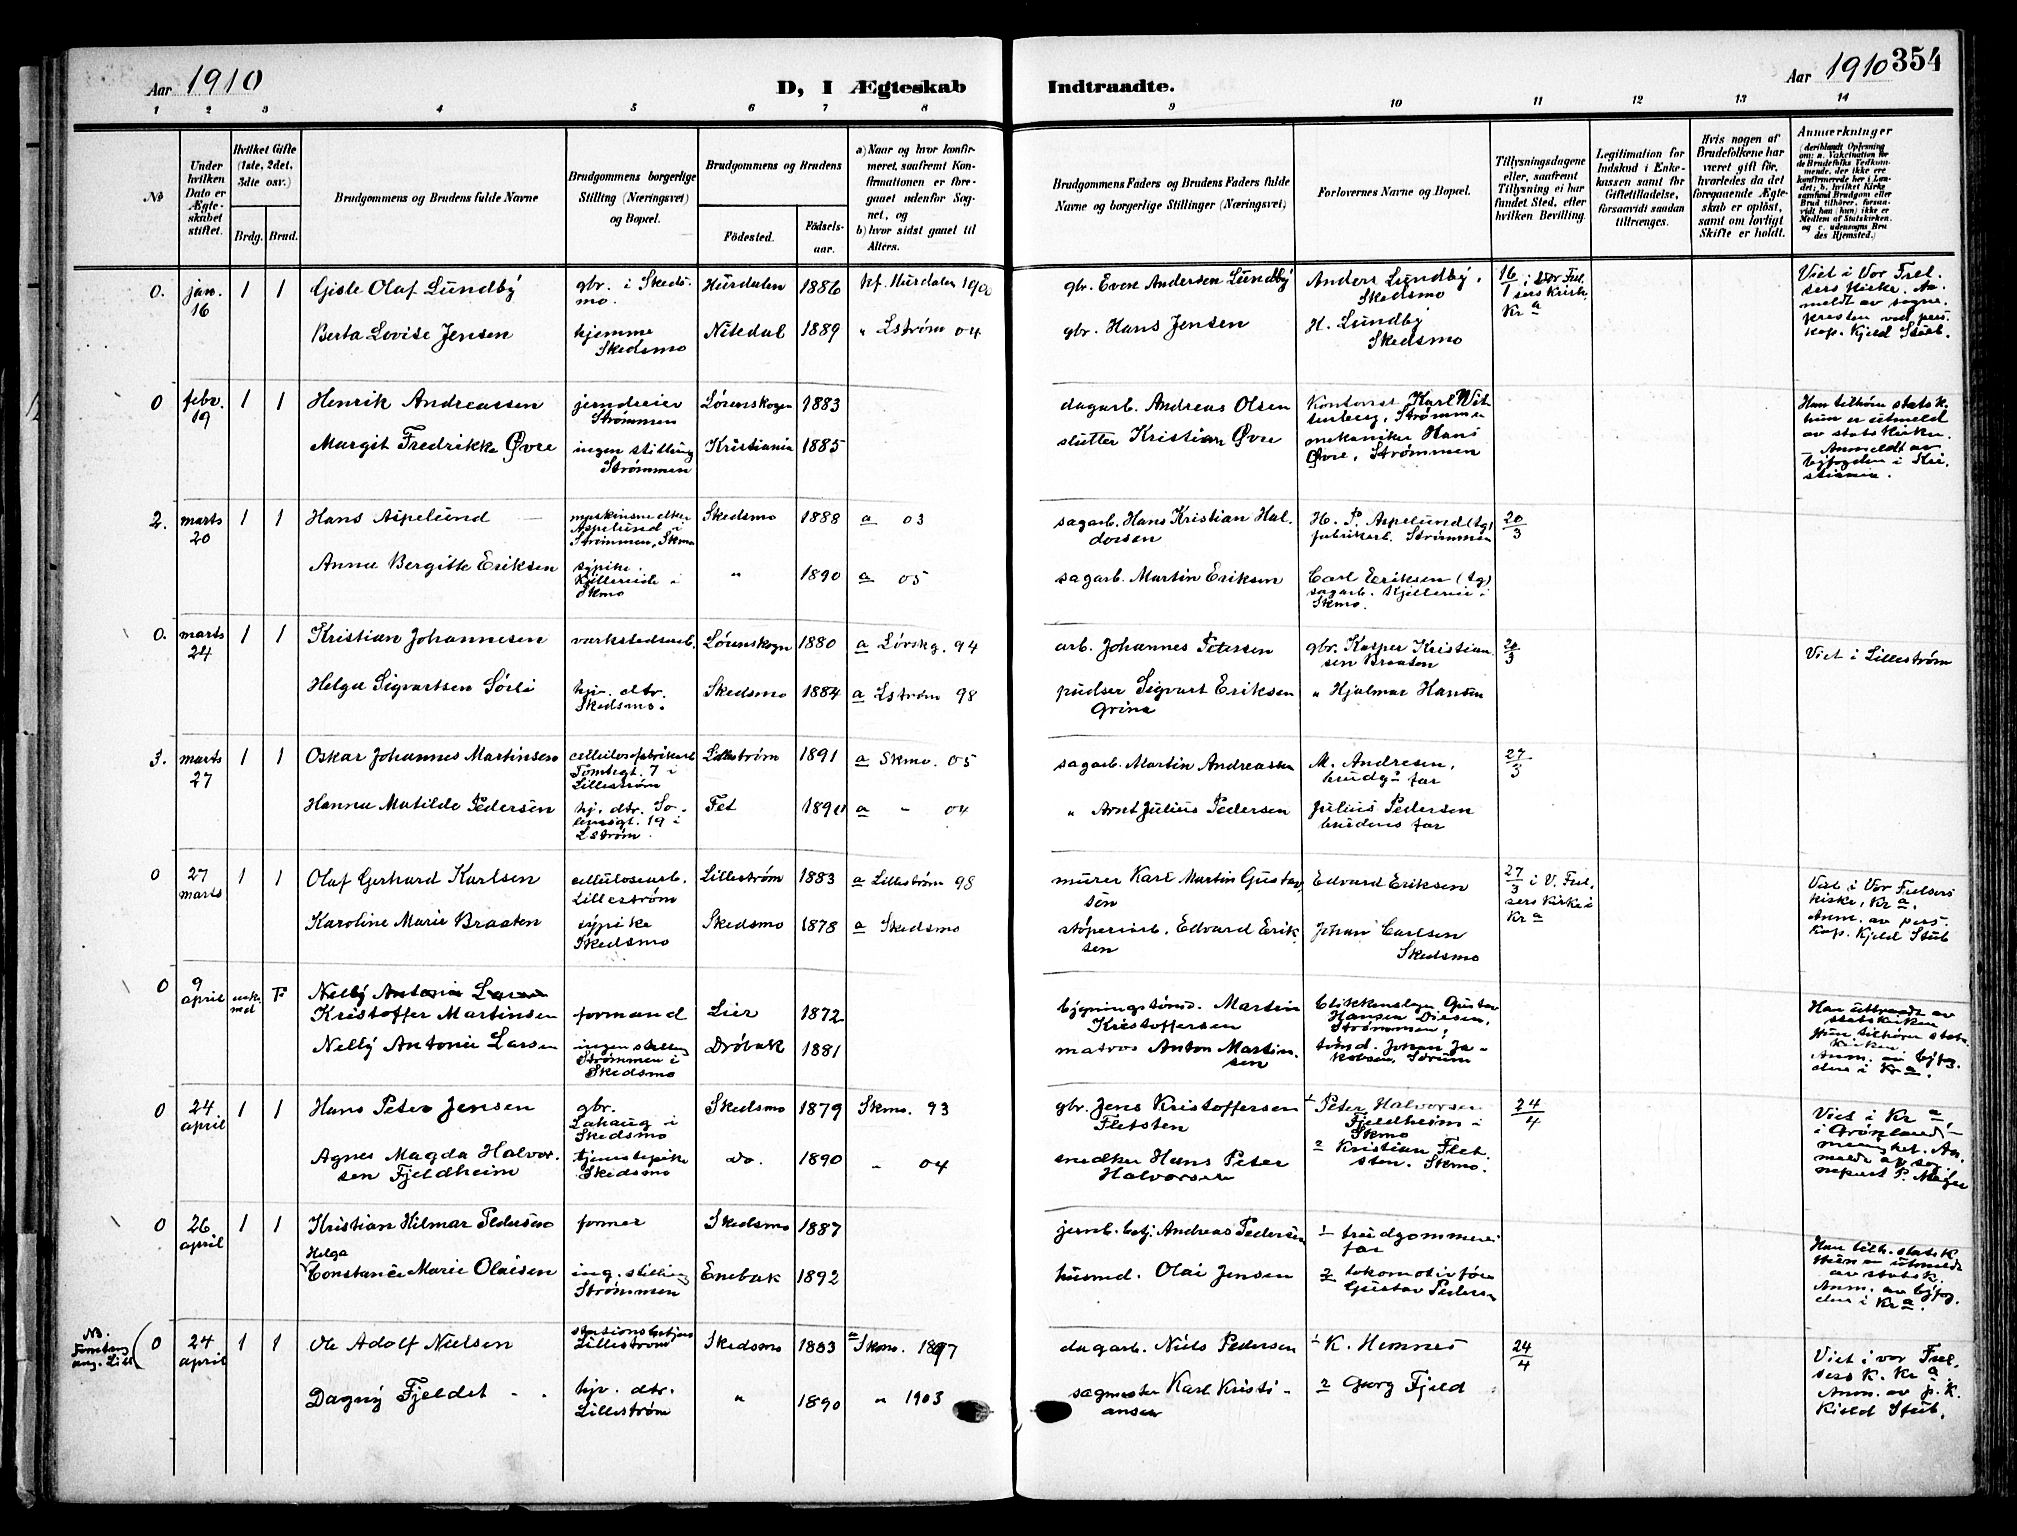 Aar 1910
D, I Ægteskab
Indtraadte.
Aar 1910
354
1 2 3 4 5 6 7 8 9 10 11 12 13 14
No
Under hvilken Dato er Ægteskabet stiftet.
Hvilket Gifte (1ste, 2det, 3dte osv.)
Brdg. Brud.
Brudgommens og Brudens fulde Navne
Brudgommens borgerlige Stilling (Næringsvei) og Bopæl.
Brudgommens og Brudens
Födested.
Födselsaar.
a) Naar og hvor konfirmeret, saafremt Konfirmationen er foregaaet udenfor Sognet, og
b) hvor sidst gaaet til Alters.
Brudgommens Faders og Brudens Faders fulde Navne og borgerlige Stillinger (Næringsvei)
Forlovernes Navne og Bopæl.
Tillysningsdagene eller, saafremt Tillysning ei har fundet Sted, efter hvilken Bevilling.
Legitimation for Indskud i Enkekassen samt for Giftetilladelse, forsaavidt saadan tiltrænges.
Hvis nogen af Brudefolkene har været gift för, hvorledes da det foregaaende Ægteskab er oplöst, samt om lovligt Skifte er holdt.
Anmærkninger
0. jan. 16 1 1 Gisle Olaf Lundby gbr. i Skedsmo. Hurdalen 1886 kf. Hurdalen
gbr. Evere Andersen Lundby Anders Lundby, Skedsmo 16/1 i Vor Frelsers Kirke, Kra
Viet i Vor Frelsers Kirke. Anmeldt av sognepresten ved pers. kap. Kjeld Stub.
Berta Lovise Jensen hjemme Skedsmo Nitedal 1889 " Lstrøm 04
gbr. Hans Jensen H. Lundby Skedsmo
0 febr. 19 1 1 Henrik Andreassen jerndreier Strømmen Lørenskogen 1883
dagarb. Andreas Olsen Kontorist Karl Wittenberg, Strømmen
Han tilhører statsk. hun er utmeldt av statskirken. - Anmeldt av byfogden i Kristiania.
Margit Fredrikke Øvre ingen stilling Strømmen Kristiania 1885
slutter Kristian Øvre mekaniker Hans Øvre, Strømmen
2. marts 20 1 1 Hans Aspelund Aspelund i Strømmen, Skmo Skedsmo 1888 a 03
sagarb. Hans Kristian Haldorsen H. P. Aspelund (tg) fabrikarb. Strømmen 20/3
Anna Bergitte Eriksen sypike. i Skmo " 1890 a 05
sagarb. Martin Eriksen Carl Eriksen (tg) sagarb. Kjelleren i Skmo.
0. marts 24 1 1 Kristian Johannesen verkstedsarb. Lørenskogn 1880 a Lørskg. 94
arb. Johannes Petersen gbr. Kasper Kristiansen Braaten
Viet i Lillestrøm
Helga Sigvartsen Sørli hjv. dtr. Skedsmo. Skedsmo 1884 a Lstrøm 98
pudser Sigvart Eriksen Grina " Hjalmar Hansen
3. marts 27 1 1 Oskar Johannes Martinsen cellulosefabrikarb. Tomtegt. 7 i Lillestrøm Lillestrøm 1891 a Skmo. 05
sagarb. Martin Andreassen M. Andresen, brudg.s far 27/3
Hanna Matilde Pedersen hj. dtr. 19 i Lstrøm. Fet 1890 a " 04
" Arnt Julius Pedersen Julius Pedersen brudens far
0 27 marts 1 1 Olaf Gerhard Karlsen cellulosearb. Lillestrøm Lillestrøm 1883 a Lillestrøm 98
murer Karl Martin Gustavsen Edvard Eriksen 27/3 i V. Frelsers Kirke i Kra
Viet i Vor Frelsers Kirke, Kra. Anm. av pers. kap. Kjeld Stub
Karoline Marie Braaten sypike Skedsmo Skedsmo 1878 a Skedsmo
støperiarb. Edvard Eriksen Johan Carlsen Skedsmo
0 9 april F Nelly Antonie Larsen
Kristoffer Martinsen formand Lier 1872
bygningstømd. Martin Kristoffersen Gustav Hansen Strømmen,
Nelly Antonie Larsen ingen stilling Strømmen i Skedsmo Drøbak 1881
matros Anton Martinsen tømd. Johan Jakobsen, Sørum
Han uttraadt av statskirken hun tilhører statskirken. Anm. av byfogden i Kra.
0 24 april 1 1 Hans Peter Jensen gbr. Lahaug i Skedsmo Skedsmo 1879 Skmo. 93
gbr. Jens Kristoffersen Fletsten 1 Peter Halvorsen Fjeldheim i Skmo 24/4
Viet i Kra i Grønland menighet. Anmeldt av P. Meyer
Agnes Magda Halvorsen Fjeldheim tjenestepike Skedsmo do. 1890 " 04
snedker Hans Peter Halvorsen 2 Kristian Fletsten. Skmo.
0 26 april 1 1 Kristian Hilmar Pedersen former Skedsmo 1887
jernb. betj. Andreas Pedersen 1 brudgommens far
Helga
Constance Marie Olaisen ing. stilling Strømmen Enebak 1892
husmd. Olai Jensen 2 lokomotivføre Gustav Pedersen
Han tilh. statsk. Hun utmeldt av statsk. Anm. av byfogden i Kra.
NB.
0 24 april 1 1 Ole Adolf Nielsen stationsbetjent Lillestrøm Skedsmo 1883 a Skmo. 1897
dagarb. Niels Pedersen 1 K. Hemnes 24/4
Viet i vor Frelsers K. Kra. Anm. av p. k. Kjeld Stub.
Dagny Fjeldet hjv. dtr. Lillestrøm " 1890 " 1903
sagmester Karl Kristiansen 2 Georg Fjeld